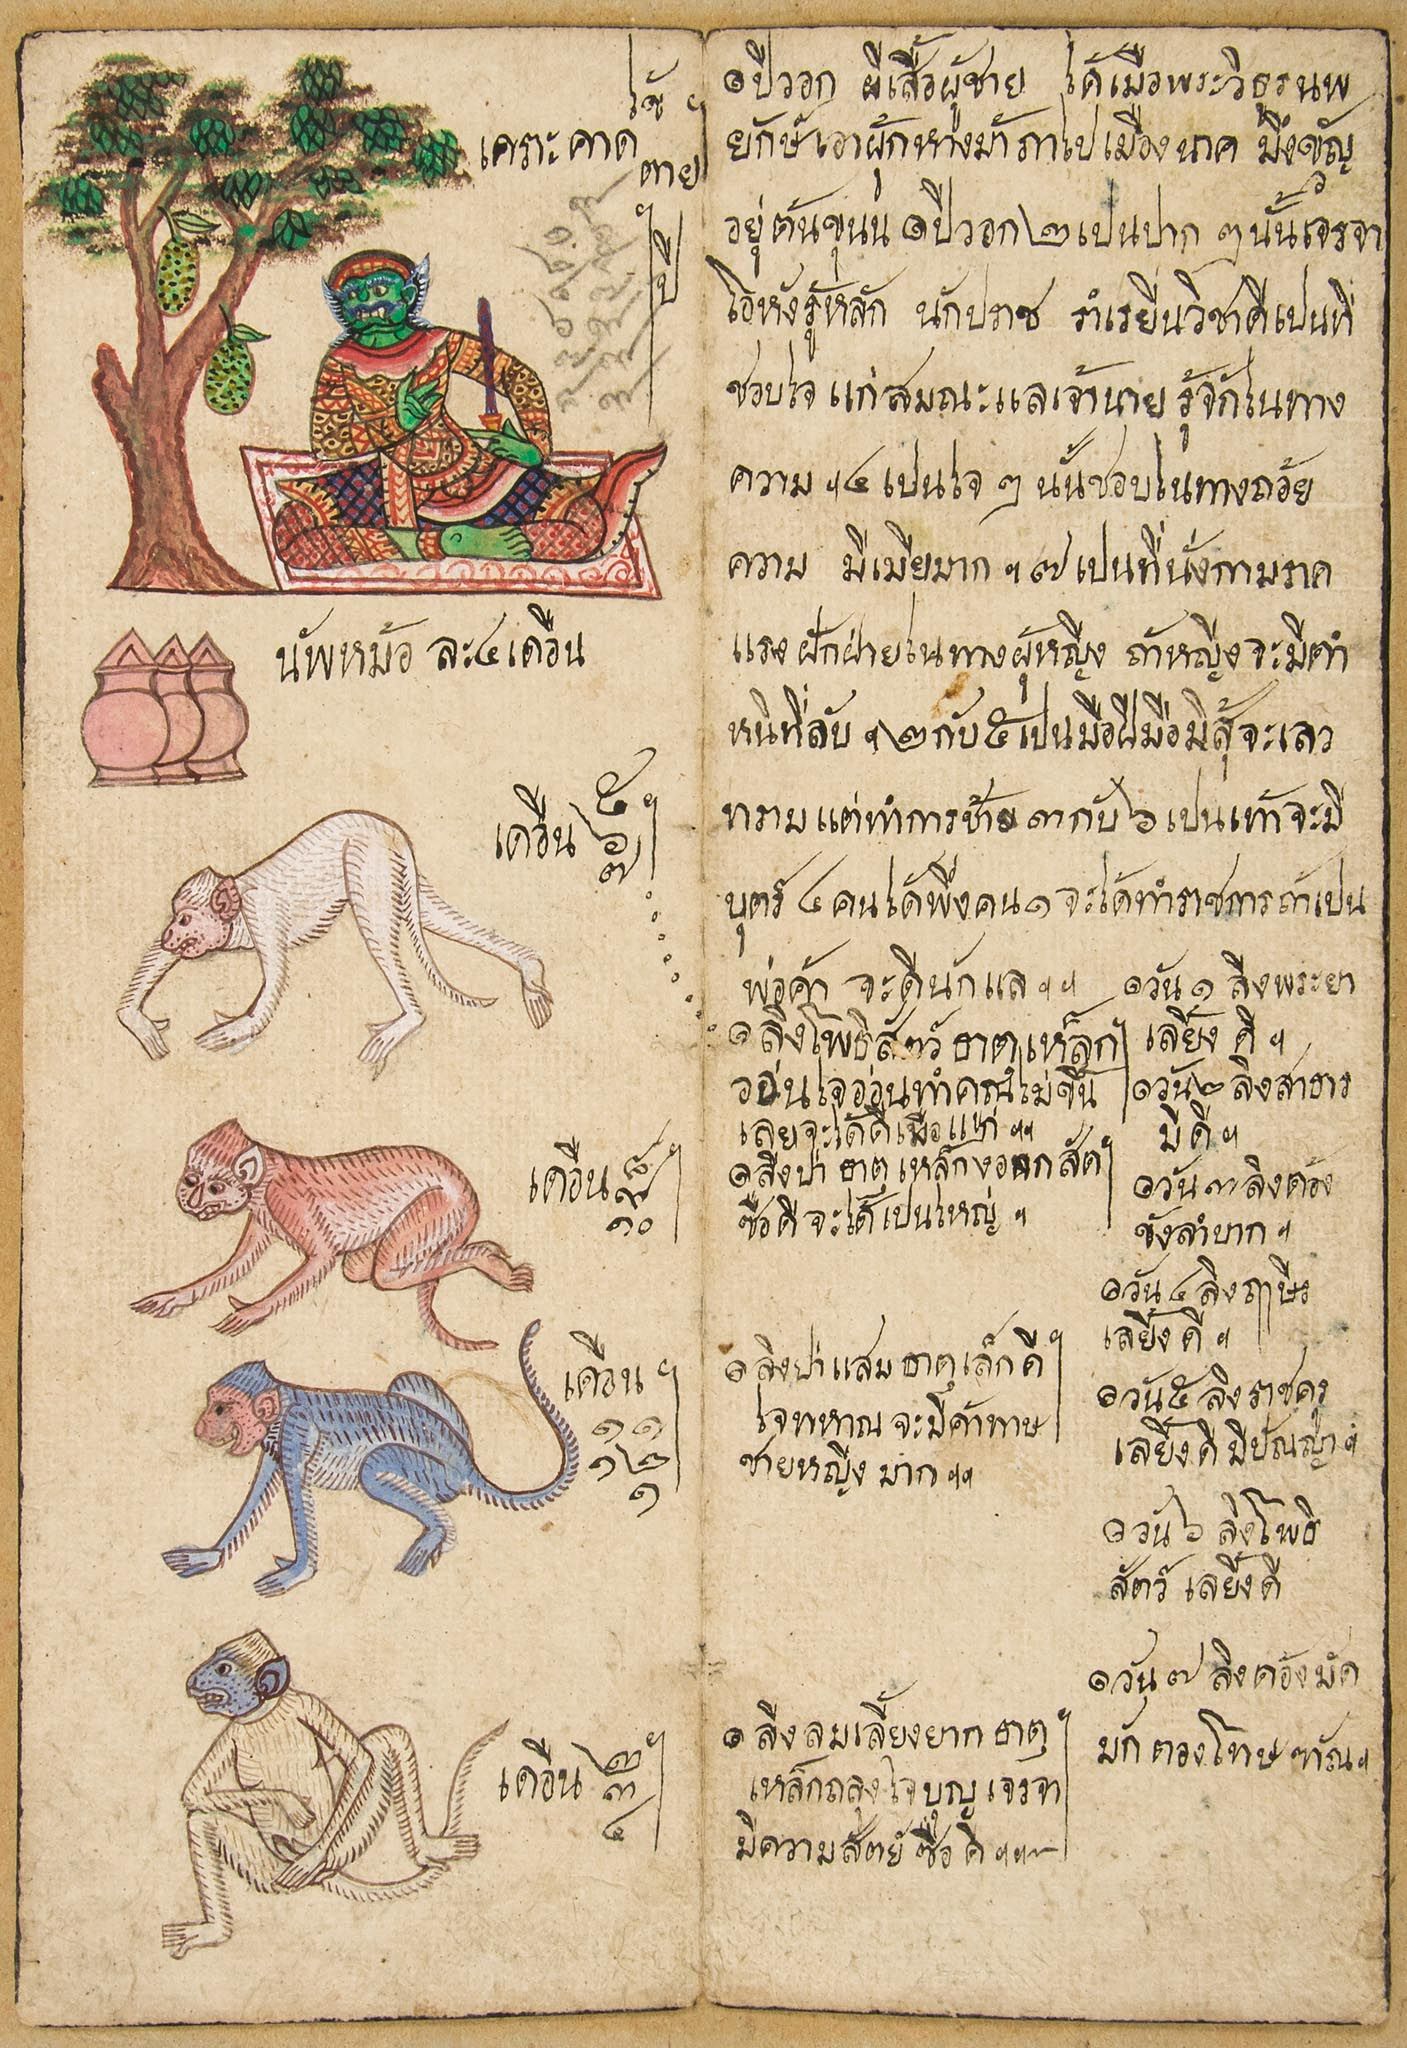 เคราะคาด
ไข้ ฯ
ตาย
ปี
นับหม้อ ละ ๔ เดือน
เดือน ๕ ๖ ๗ ฯ
เดือน ๘ ๙ ๑๐ ฯ
เดือน ๑๑ ๑๒ ๑ ฯ
เดือน ๒ ๓ ๔ ฯ
๏ปีวอก ผีเสื้อผู้ชาย ได้เมือพระวิธูรนพ
ยักษ์เอาผูกหางม้าภาไปเมืองนาค มิ่งขวัญ
อยู่ต้นขนุน ๏ปีวอก ๒ เป็นปาก ๆ นั้นเจรจา
โอหังรู้หลัก นักปราช ร่ำเรยียนวิชาดีเปนที่
ชอบใจ แก่สมณะแลเจ้านาย รู้จักไนทาง
ความ ฯ ๔ เปนใจ ๆ นั้นชอบไนทางถ้อย
ความ มีเมียมาก ฯ ๗ เปนที่นั่งกามราค
แรง ฝักฝ่ายไนทางผู้หญีง ถ้าหญีงจะมีตำ
หนิที่ลับ ฯ ๒ กับ ๕ เปนมือฝีมือมิสู้จะเลว
ทราม แต่ทำการซ้าย ๓ กับ ๖ เปนเท้าจะมี
บุตร์ ๔ คนได้พึ่งคน ๑ จะได้ทำราชการถ้าเปน
พ่อค้า จะดีนักแล ฯ ฯ
๏ ลิงโพธิสัตว์ ธาตุเหล็ก
ออ่นใจออ่นทำคุณไม่ขึ้น
เลยจะได้ดีเมือแก่ ฯ ฯ
๏ลีงป่า ธาตุเหล็กงอกสัต
ซือดีจะได้เปนใหญ่ ฯ
๏ ลิงป่าแสม ธาตุเล็กดี
ใจทหาณ จะมีค่าทาษ
ชายหญีง มาก ฯ ฯ
๏ ลีงลมเลี้ยงยาก ธาตุ
เหล็กถลุงใจบุญ เจรจา
มีความสัตย์ ซือดี ฯ ฯ
๏วัน ๑ ลีงพระยา
เลยี้ง ดี ฯ
๏วัน ๒ ลิงสาธาร
มี ดี ฯ
๏วัน ๓ ลิงต้อง
ขังลำบาก ฯ
๏วัน ๔ ลิงฤาษีร
เลยี้งดี ฯ
๏วัน ๕ ลิงราชครู
เลยี้งดี มีปัณญา ฯ
๏วัน ๖ ลิงโพธิ
สัตว์ เลยี้งดี
๏วัน ๗ ลิงต้องมัด
มักตองโทษ ทัณ ฯ